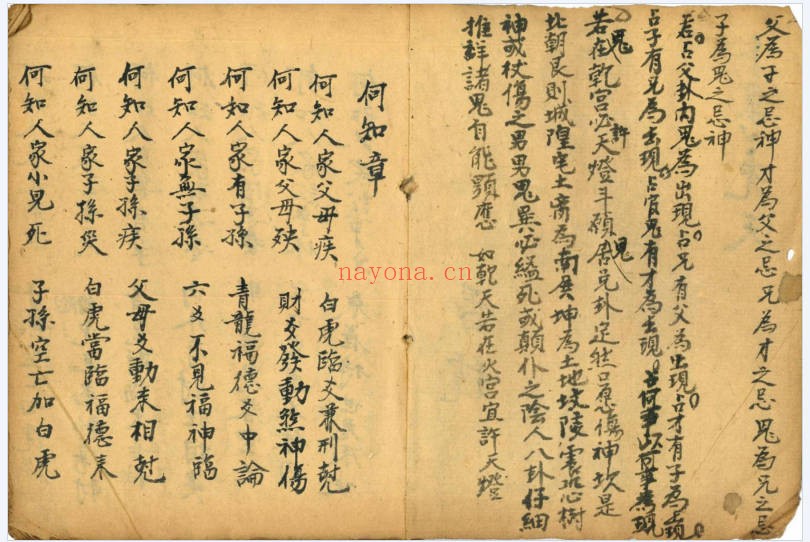 父為子之忌神才為父之忌兄為才之忌鬼為兄之忌
子為鬼之忌神
若占父卦內鬼為出現占兄有父為出現占才有子為出現
占子有兄為出現占官鬼有才為出現占何事以何為現
鬼若在乾宮必許天燈斗願鬼居兌卦定然口愿傷神坎是
北朝艮則城隍宅土商為南晨坤為土地坟陵震在心樹
神或杖傷之男男鬼巽必縊死或顛仆之陰人八卦仔細
推詳諸鬼自能顯應 如乾天若在火宮宜許天燈
何知章
何知人家父母疾 白虎臨爻兼刑尅
何知人家父母殃 財爻發動煞神傷
何知人家有子孫 青龍福德爻中論
何知人家無子孫 六爻不見福神臨
何知人家子孫疾 父母爻動来相尅
何知人家子孫災 白虎當臨福德来
何知人家小児死 子孫空亡加白虎
nayona.cn